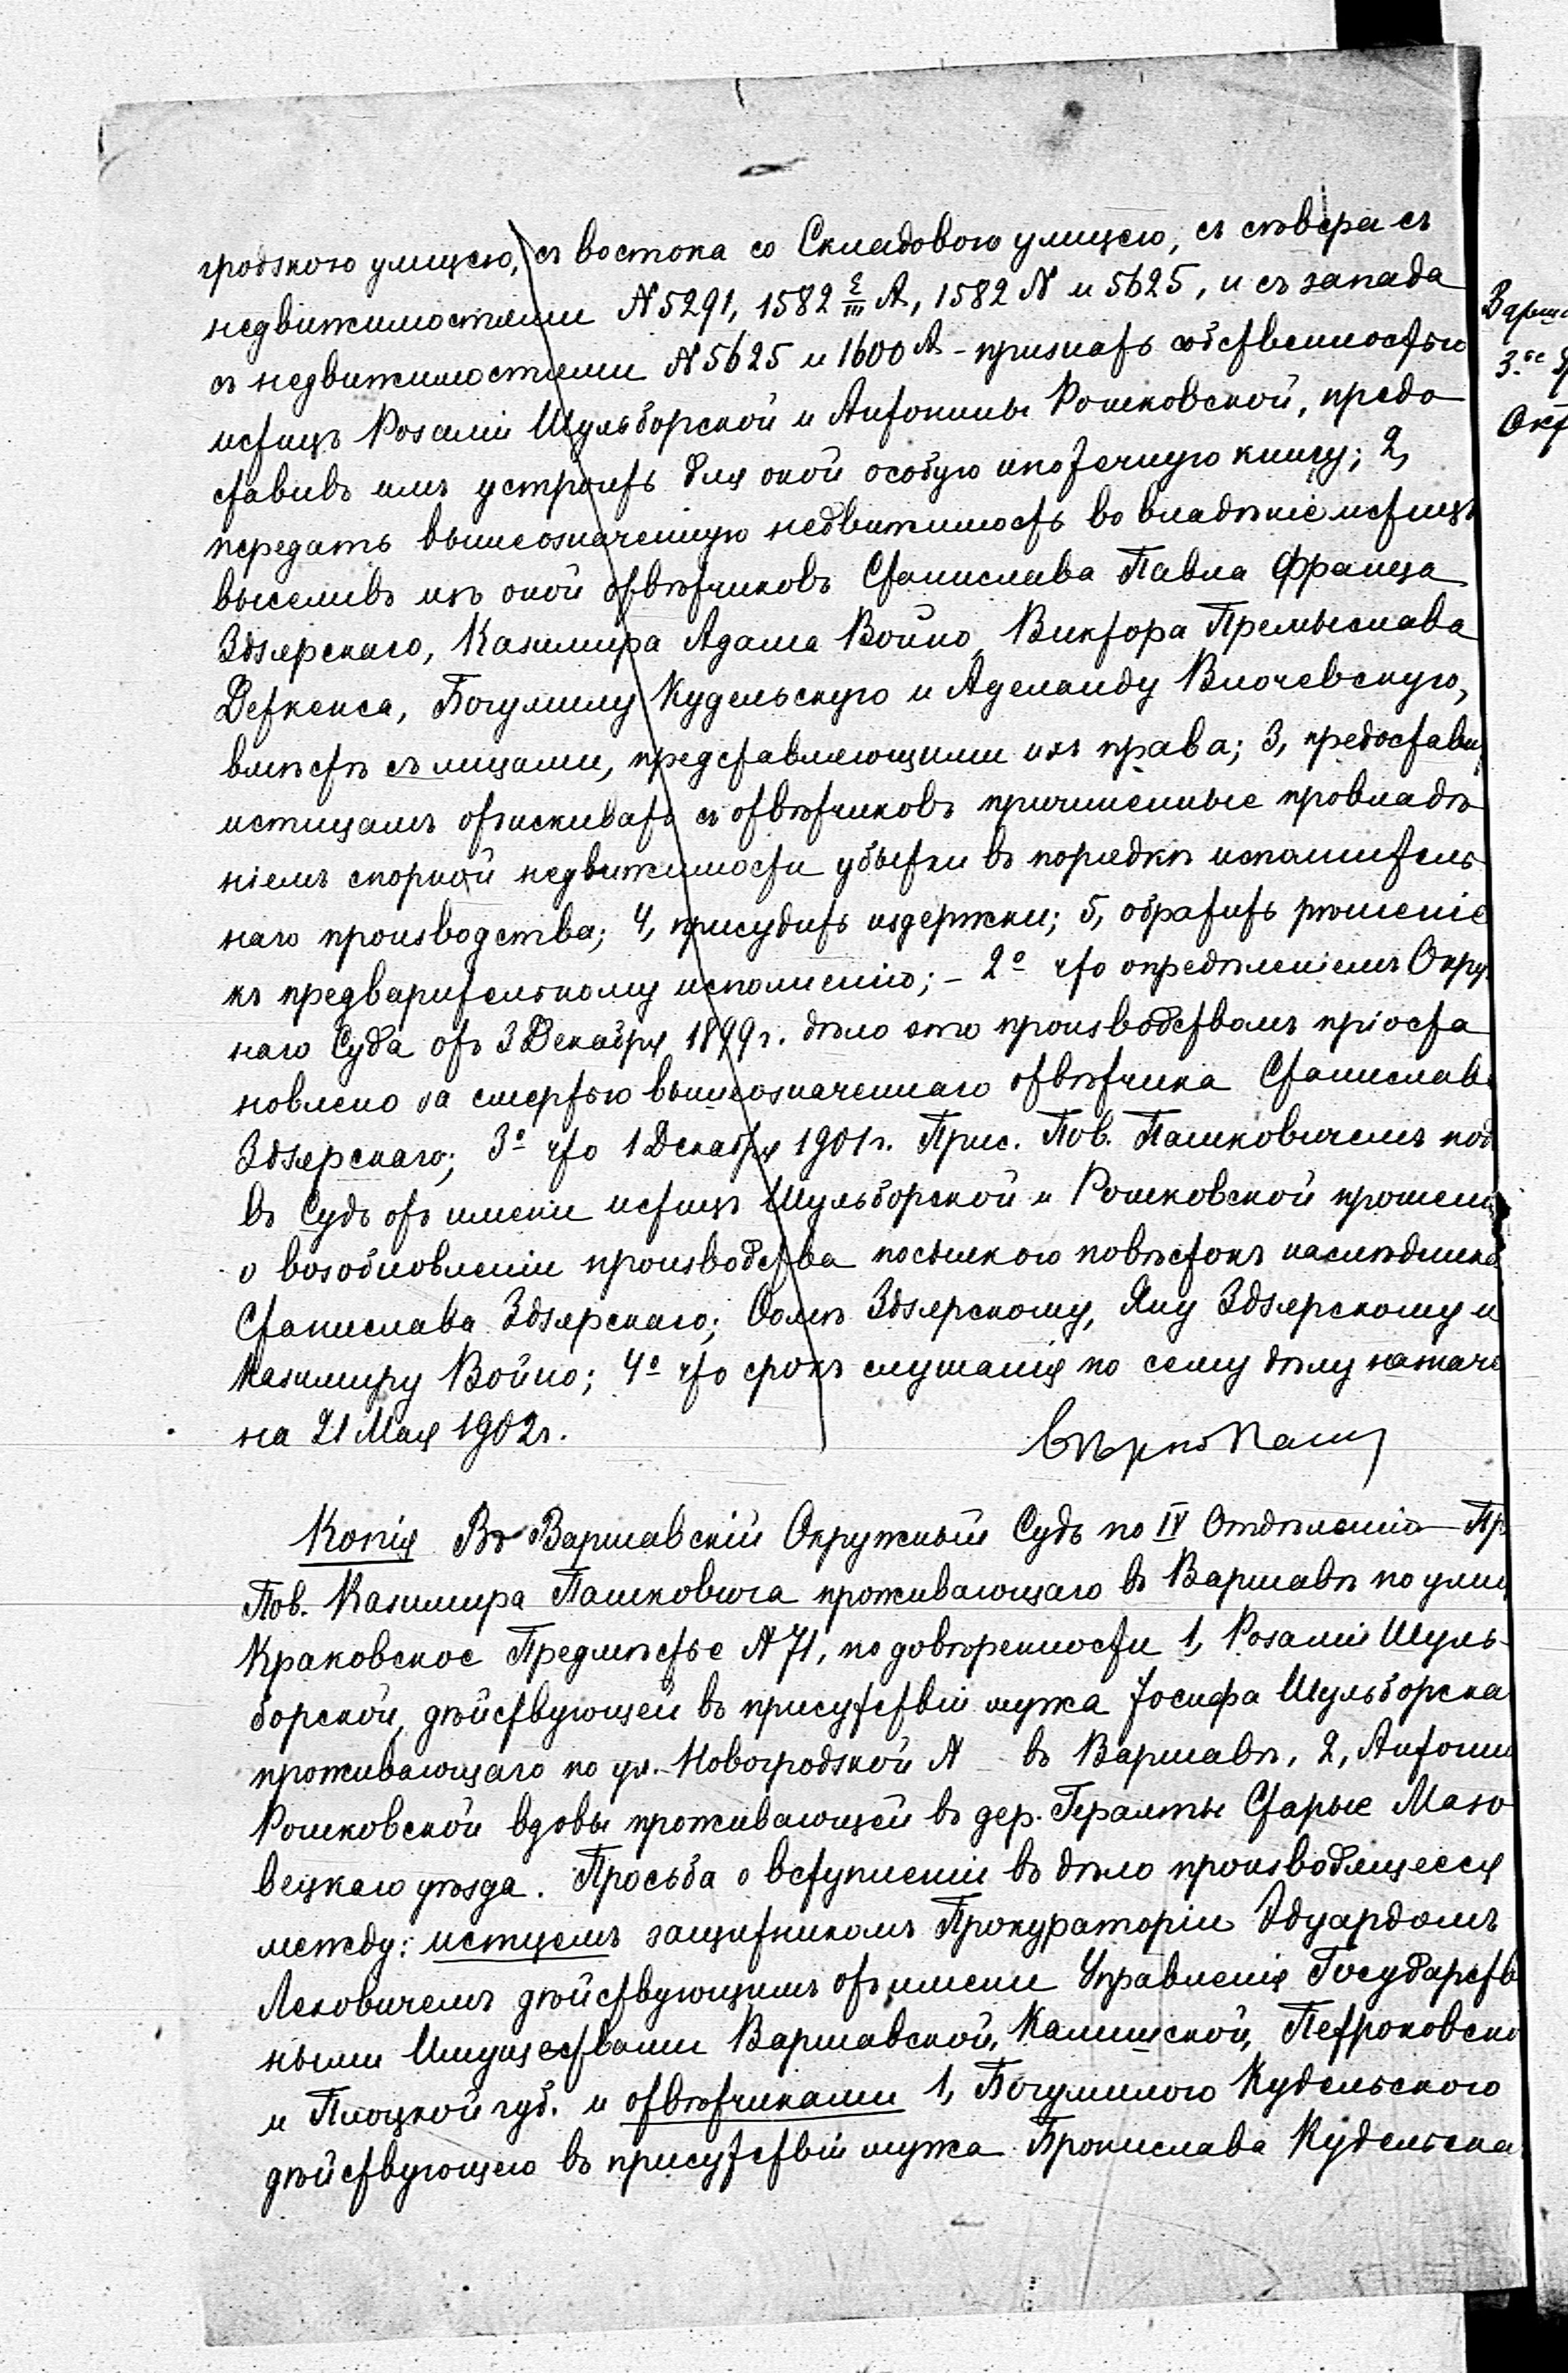 гродзкою улицею, съ востока со Складовою улицею, съ сѣвера съ
недвижимостями N 5291, 1582 A, 1582 N и 5625, и съ запада
съ недвижимостями N 5625 и 1600 A - признать собственностью
истицъ Розаліи Шульборской и Антонины Рошковской, предо
ставивъ имъ устроить для оной особую ипотечную книгу; 2,
передать вышеозначенную недвижимость во владѣніе истицъ
выселивъ изъ оной отвѣтчиковъ Станислава Павла Франца
Здзярскаго, Казимира Адама Войно, Виктора Премыслава
Деткенса, Богумилу Кудельскую и Аделаиду Влочевскую,
вмѣстѣ съ лицами, представляющими ихъ права; 3, предостави
истицамъ отыскивать съ отвѣтчиковъ причиненные провладѣ
ніемъ спорной недвижимости убытки въ порядкѣ исполнитель
наго производства; 4, присудить издержки; 5, обратить рѣшеніе
къ предварительному исполненію; - 2º что опредѣленіемъ Окру
наго Суда отъ 3 Декабря 1899 г. дѣло это производствомъ пріоста
новлено за смертью вышеозначеннаго отвѣтчика Станислава
Здзярскаго; 3º что 1 Декабря 1901 г. Прис. Пов. Пашковичемъ под
въ Судъ отъ имени истицъ Шульборской и Рошковской прошені
о возобновленіи производства посылкою повѣстокъ наслѣдника
Станислава Здзярскаго; Солѣ Здзярскому, Яну Здзярскому и
Казимиру Войно; 4º что срокъ слушанія по сему дѣлу назначе
на 21 Мая 1902 г.
вѣрно Паш
Копія Въ Варшавскій Окружный Судъ по IV Отдѣленію Пр
Пов. Казимира Пашковича проживающаго въ Варшавѣ по ули
Краковское Предмѣстье N 71, по довѣренности 1, Розаліи Шуль-
борской, дѣйствующей въ присутствіи мужа Іосифа Шульборска
проживающаго по ул. Новогродзкой N - въ Варшавѣ, 2, Антони
Рошковской вдовы проживающей въ дер. Гералты Старые Мазо
вецкаго уѣзда. Просьба о вступленіи въ дѣло производящееся
между: истцемъ защитникомъ Прокураторіи Эдуардомъ
Лековичемъ дѣйствующимъ отъ имени Управленія Государств
ными Имуществами Варшавской, Калишской, Петроковско
и Плоцкой губ. и отвѣтчиками 1, Богумилою Кудельского
дѣйствующею въ присутствіи мужа Бронислава Кудельска
Варша
3.ье
Окт